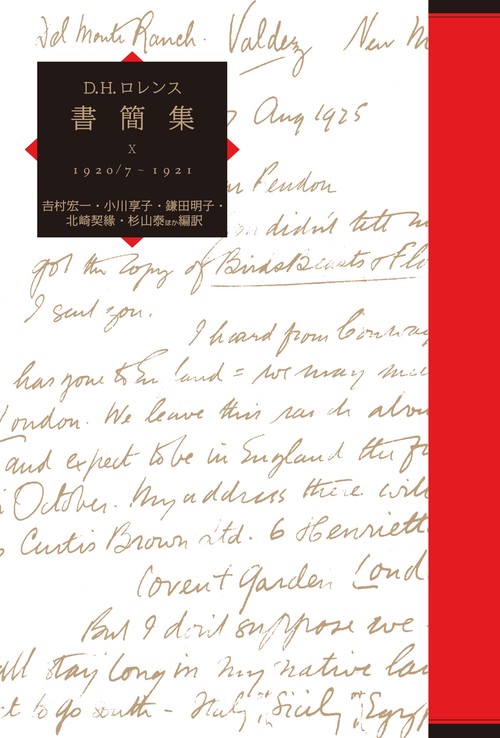 Del Monte Ranch. Valdez New M
D.H.ロレンス
書簡集
X
1920/7~1921
吉村宏一・小川享子・鎌田明子・
北崎契縁・杉山泰ほか編訳
Aug 1925
Pendon
didn't tell m
got the copy of Birds Beasts & Flo
I sent you.
I heard from Conway
has gone to England = we may
London. We leave this ranch abou
and expect to be in England the fi
October. My address there will
Curtis Brown Ltd. 6 Henriett
Covent Garden Lond
But I don't suppose we
all stay long in my native la
t to go south - Italy, Sicily, Egyp